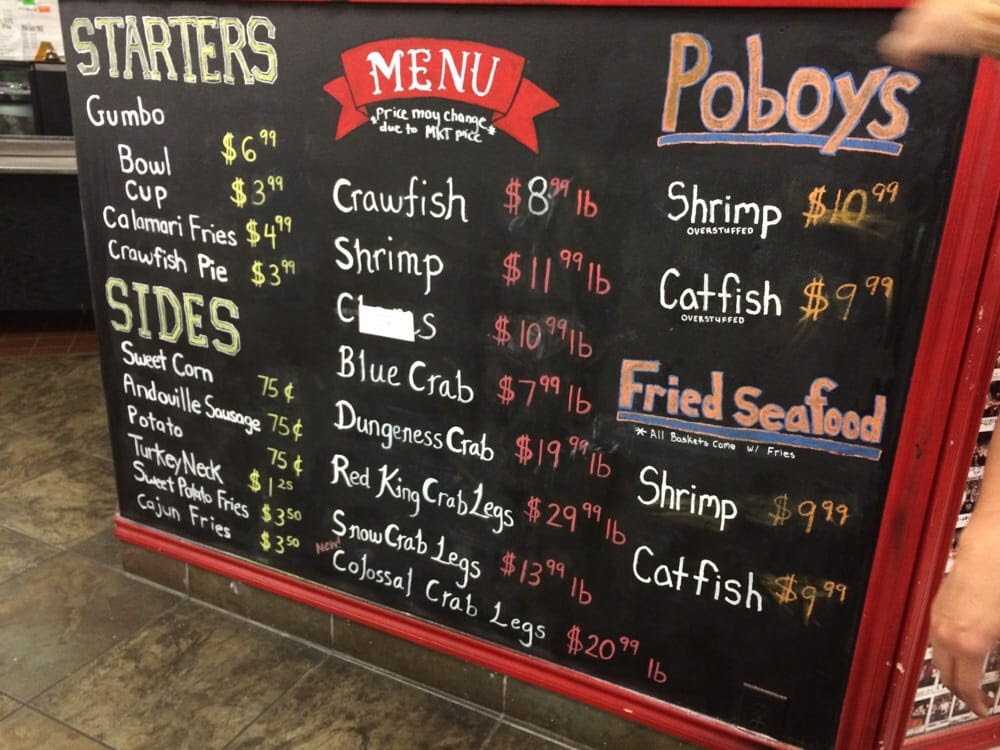 STARTERS
Gumbo
Bowl $6.99
Cup $3.99
Calamari Fries $4.99
Crawfish Pie $3.99
SIDES
Sweet Corn 75¢
Andouville Sausage 75¢
Potato 75¢
Turkey Neck $1.25
Sweet Potato Fries $3.50
Cajun Fries $3.50
MENU
*Price may change*
due to MKT price
Crawfish $8.99 lb
Shrimp $11.99 lb
$10.99 lb
Blue Crab $7.99 lb
Dungeness Crab $19.99 lb
Red King Crab Legs $29.99 lb
Snow Crab Legs $13.99 lb
New! Colossal Crab Legs $20.99 lb
Poboys
Shrimp $10.99
OVERSTUFFED
Catfish $9.99
OVERSTUFFED
Fried Seafood
* All Baskets Come w/ Fries
Shrimp $9.99
Catfish $9.99